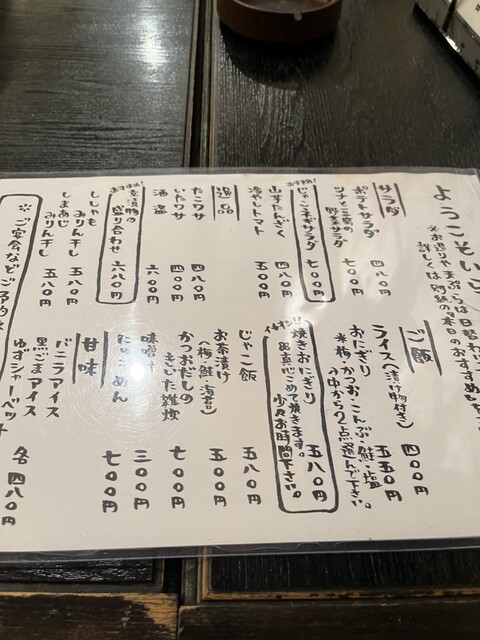 ようこそいら
※お造りや天ぷらは日替わりで
詳しくは別紙の本日のおすすめを
サラダ
ポテトサラダ 四八〇円
ツナと三菜の
野菜サラダ 七〇〇円
おすすめ!
じゃこネギサラダ 七〇〇円
山芋たんざく 四八〇円
冷やしトマト 五〇〇円
逸品
たこワサ 四八〇円
いたワサ 四〇〇円
酒盗 六〇〇円
おすすめ!
漬物の
盛り合わせ 六八〇円
ししゃも
みりん干し 五八〇円
しまあじ
みりん干し 五八〇円
※ご宴会などご予約
ご飯
ライス(漬け物付き) 四〇〇円
おにぎり 五五〇円
※梅・かつお・こんぶ・鮭・塩。
の中から2点選んで下さい
イチオシ!!
焼きおにぎり 五八〇円
真心こめて焼きます。
少々お時間下さい。
じゃこ飯 五八〇円
お茶漬け 五〇〇円
(梅・鮭・海苔)
かつおだしの
きいた雑炊 七〇〇円
味噌汁 三〇〇円
にゅうめん 七〇〇円
甘味
バニラアイス
黒ごまアイス
ゆずシャーベット 各四八〇円